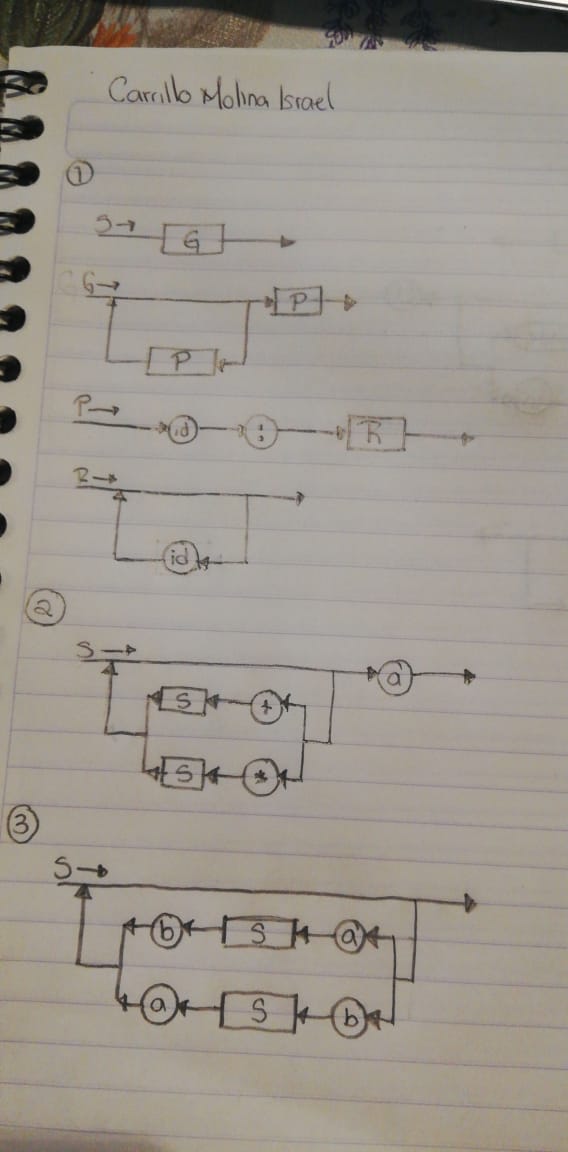 Carrillo Molina Israel
1
S→
G
G→
P
P
P→
id : R
R→
id
2
S→
a
S +
S *
3
S→
b S a
a S b